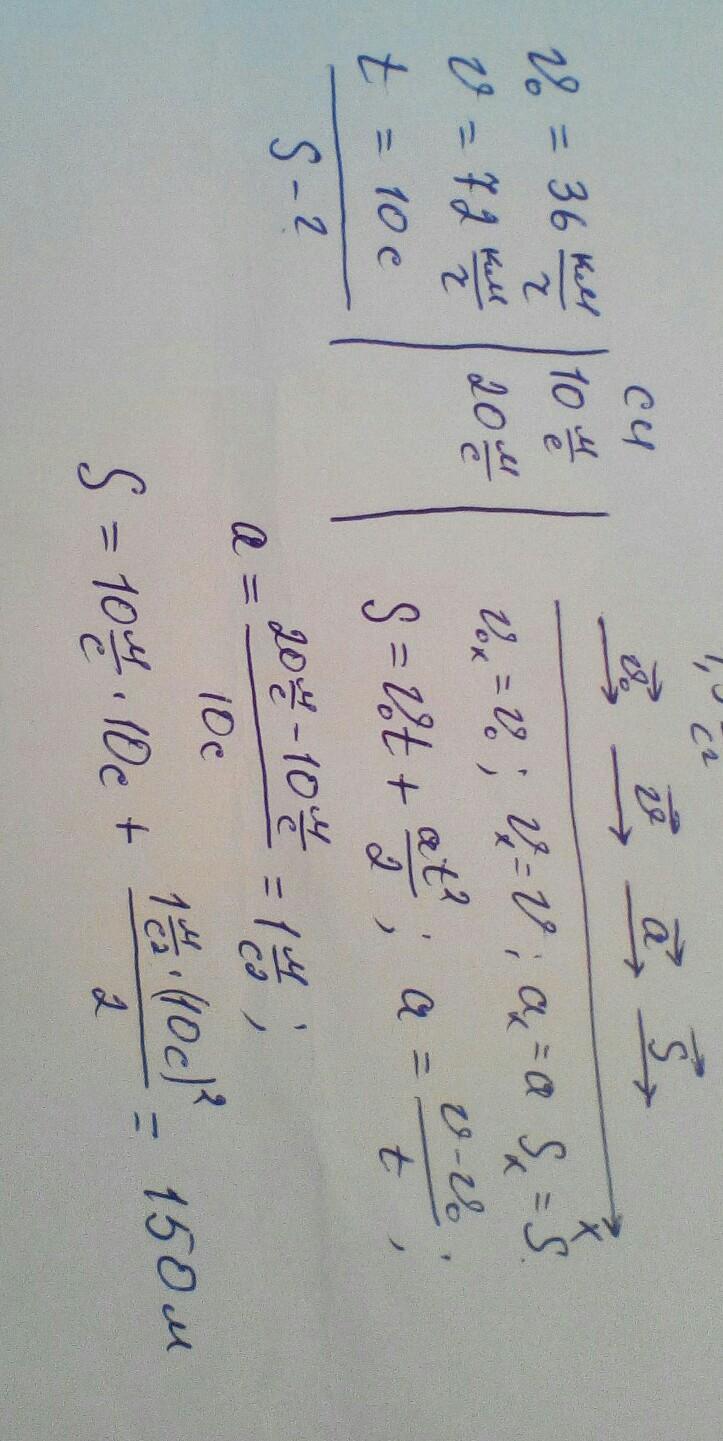 v₀ = 36 км/ч
v = 72 км/ч
t = 10 с
S - ?
СИ
10 м/с
20 м/с
с²
v⃗₀ v⃗ a⃗ S⃗
x
v₀ₓ = v₀; vₓ = v; aₓ = a Sₓ = S
S = v₀t + at²/2; a = (v - v₀)/t;
a = (20 м/с - 10 м/с)/10с = 1 м/с²;
S = 10 м/с · 10с + (1 м/с² · (10с)²)/2 = 150 м